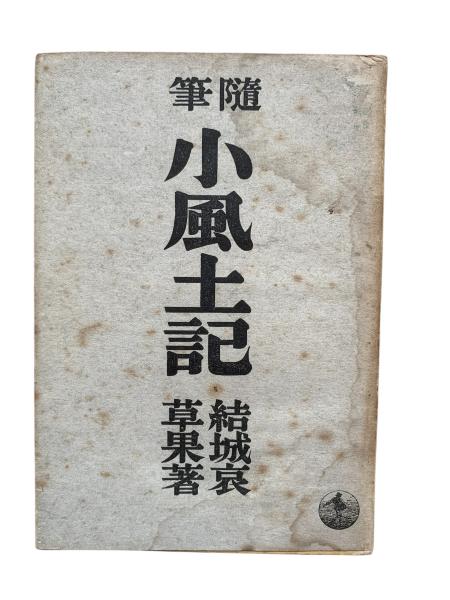 隨筆
小風土記
結城哀
草果著